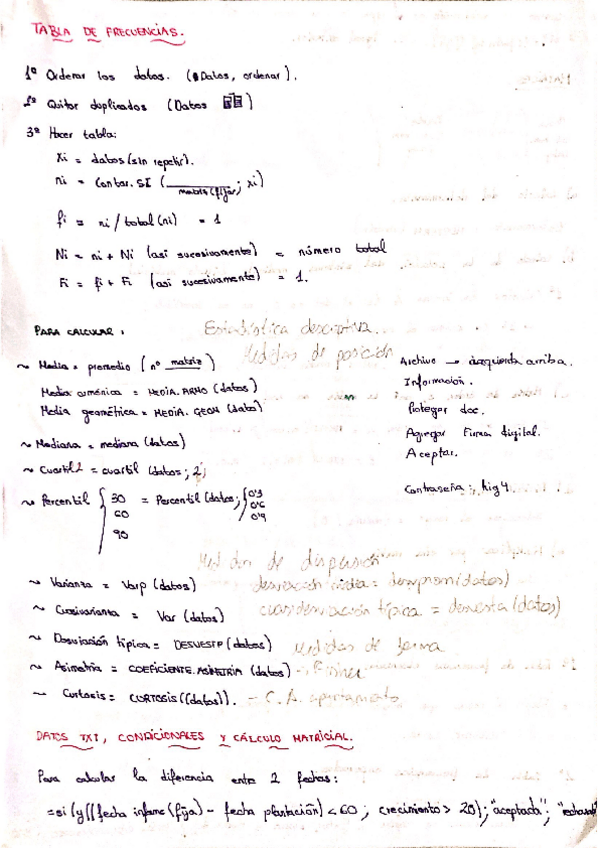 TABLA DE FRECUENCIAS.
1º Ordenar los datos. (Datos, ordenar).
2º Quitar duplicados (Datos )
3º Hacer tabla:
xi = datos (sin repetir).
ni = Contar.SI (________; xi)
matriz (fijar)
fi = ni / total (ni) = 1
Ni = ni + Ni (asi sucesivamente) = número total
Fi = fi + Fi (asi sucesivamente) = 1.
PARA CALCULAR: Estadística descriptiva.
Medidas de posición
~ Media = promedio (nº matriz)
Media armónica = MEDIA.ARMO (datos)
Media geométrica = MEDIA.GEOM (datos)
~ Mediana = mediana (datos)
~ Cuartil 2 = cuartil (datos; 2)
~ Percentil { 30 = Percentil (datos; { 0'3
60 0'6
90 0'9
Archivo → izquierda arriba.
Información.
Proteger doc.
Agregar Firma digital.
Aceptar.
Contraseña: hig4.
Medidas de dispersión
~ Varianza = Varp (datos) desviación media = desvprom (datos)
~ Cuasivarianza = Var (datos) cuasidesviación típica = desvesta (datos)
~ Desviación típica = DESVESTP (datos) Medidas de forma
~ Asimetría = COEFICIENTE.ASIMETRIA (datos) - Fisher
~ Curtosis = CURTOSIS ((datos)). - C. A. apuntamiento
DATOS TXT, CONDICIONALES Y CÁLCULO MATRICIAL.
Para calcular la diferencia entre 2 fechas:
=si (y((fecha informe (fija) - fecha plantación) < 60 ; crecimiento > 20); "aceptada"; "rechazada"